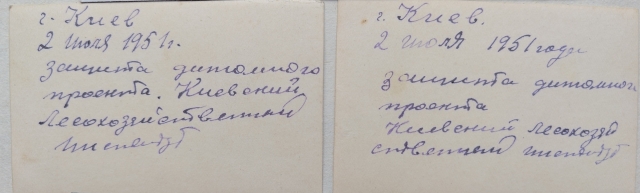 г. Киев
2 июля 1951г.
Защита дипломного
проекта. Киевский
Лесохозяйственный
институт
г. Киев.
2 июля 1951 года
Защита дипломного
проекта
Киевский Лесохозяй
ственный институт